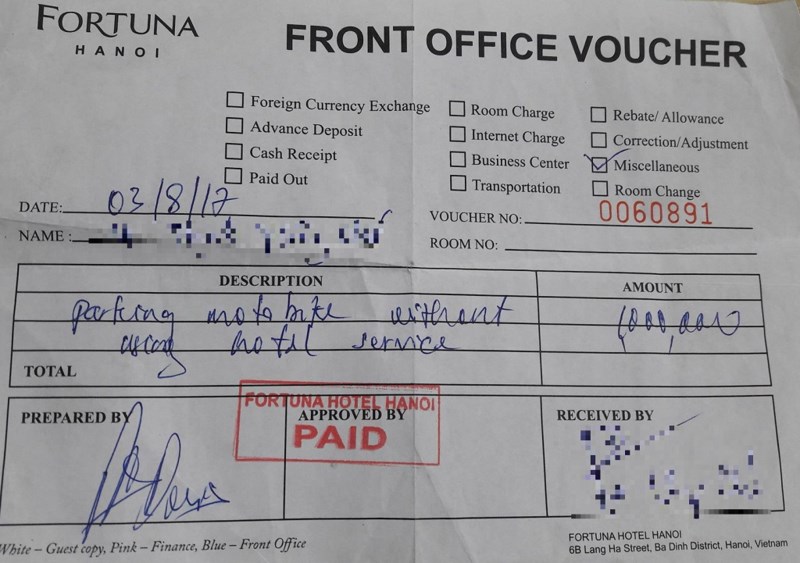 FORTUNA
HANOI
FRONT OFFICE VOUCHER
Foreign Currency Exchange
Advance Deposit
Cash Receipt
Paid Out
Room Charge
Internet Charge
Business Center
Transportation
Rebate/ Allowance
Correction/Adjustment
Miscellaneous
Room Change
DATE: 03/8/17
NAME :
VOUCHER NO: 0060891
ROOM NO:
DESCRIPTION AMOUNT
parking motobike without 1,000,000
using hotel service
TOTAL
PREPARED BY
APPROVED BY
FORTUNA HOTEL HANOI
PAID
RECEIVED BY
White – Guest copy, Pink – Finance, Blue – Front Office
FORTUNA HOTEL HANOI
6B Lang Ha Street, Ba Dinh District, Hanoi, Vietnam